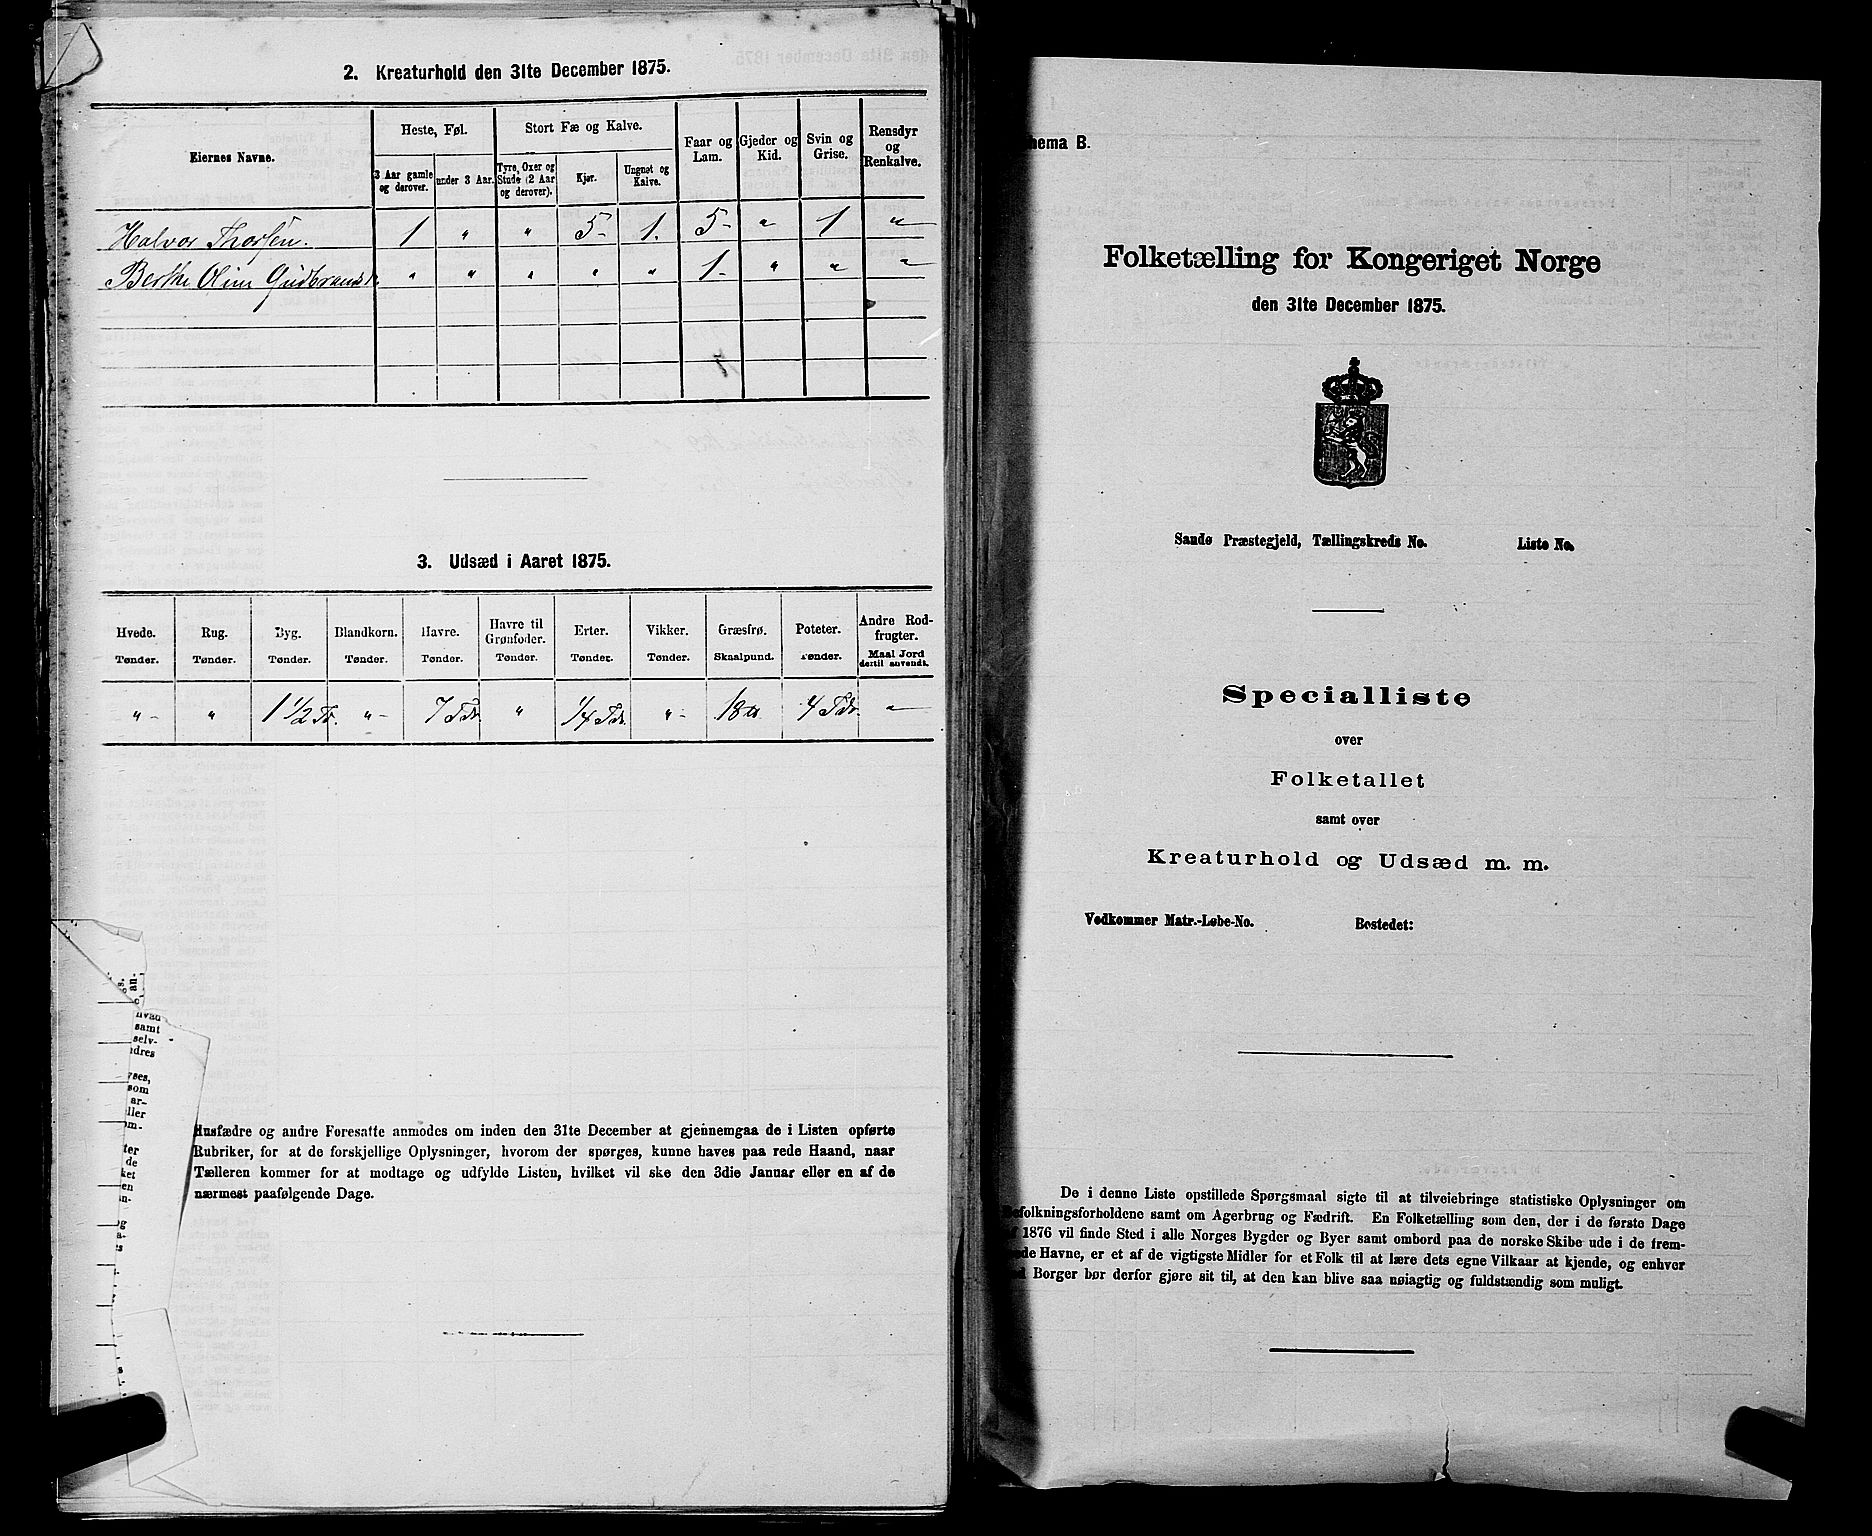 2. Kreaturhold den 31te December 1875.
Eiernes Navne.
Heste, Føl.
3 Aar gamle og derover.
under 3 Aar.
Stort Fæ og Kalve.
Tyre, Oxer og Stude (2 Aar og derover).
Kjør.
Ungnøt og Kalve.
Faar og Lam.
Gjeder og Kid.
Svin og Grise.
Rensdyr og Renkalve.
Halvor Thorsen. 1 " " 5- 1. 5- " 1 "
Berthe Oline " " " " " 1- " " "
3. Udsæd i Aaret 1875.
Hvede. Rug. Byg. Blandkorn. Havre. Havre til Grønfoder. Erter. Vikker. Græsfrø. Poteter. Andre Rodfrugter.
Tønder. Tønder. Tønder. Tønder. Tønder. Tønder. Tønder. Tønder. Skaalpund. Tønder. Maal Jord dertil anvendt.
"- " 1 1/2 Td. "- 7 Tdr. " 1/4 Tdr. "- 18 4 Tdr. "
Husfædre og andre Foresatte anmodes om inden den 31te December at gjennemgaa de i Listen opførte
Rubriker, for at de forskjellige Oplysninger, hvorom der spørges, kunne haves paa rede Haand, naar
Tælleren kommer for at modtage og udfylde Listen, hvilket vil ske den 3die Januar eller en af de
nærmest paafølgende Dage.
hema B.
Folketælling for Kongeriget Norge
den 31te December 1875.
Sandø Præstegjeld, Tællingskreds No. Liste No.
Specialliste
over
Folketallet
samt over
Kreaturhold og Udsæd m. m.
Vedkommer Matr.-Løbe-No. Bostedet:
De i denne Liste opstillede Spørgsmaal sigte til at tilveiebringe statistiske Oplysninger om
efolkningsforholdene samt om Agerbrug og Fædrift. En Folketælling som den, der i de første Dage
f 1876 vil finde Sted i alle Norges Bygder og Byer samt ombord paa de norske Skibe ude i de frem-
de Havne, er et af de vigtigste Midler for et Folk til at lære dets egne Vilkaar at kjende, og enhver
d Borger bør derfor gjøre sit til, at den kan blive saa nøiagtig og fuldstændig som muligt.